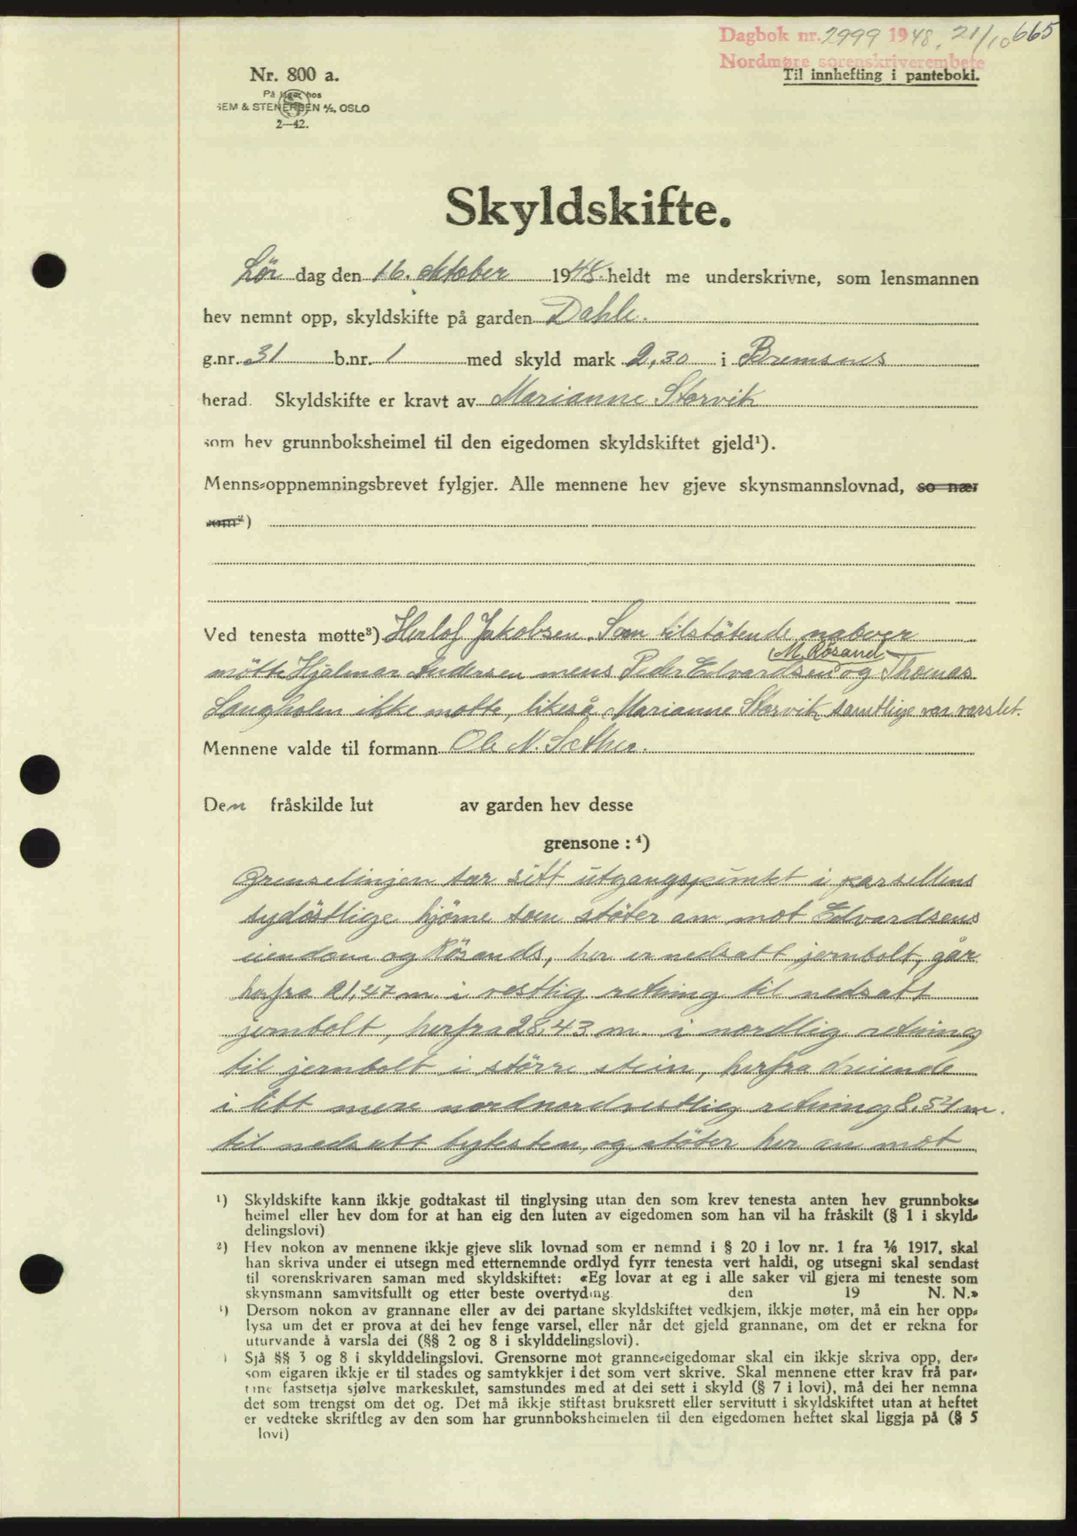 Dagbok nr. 2999 1948. 21/10 665
Nordmøre sorenskriverembete
Til innhefting i panteboki.
Nr. 800 a.
På lager hos
SEM & STENERSEN A/S, OSLO
2—42.
Skyldskifte.
Lør dag den 16. oktober 1948 heldt me underskrivne, som lensmannen
hev nemnt opp, skyldskifte på garden Dahle.
g.nr. 31 b.nr. 1 med skyld mark 2,30 i Bremsnes
herad. Skyldskifte er kravt av Marianne Storvik
som hev grunnboksheimel til den eigedomen skyldskiftet gjeld¹).
Menns-oppnemningsbrevet fylgjer. Alle mennene hev gjeve skynsmannslovnad, so nær
som²)
Ved tenesta møtte³) Herlof Jakobsen. Som tilstötende naboer
M. Rösand
mötte Hjalmar Andersen mens Peder Edvardsen og Thomas
Langholen ikke møtte, likeså Marianne Storvik samtlige var varslet.
Mennene valde til formann Ole N. Sæther.
Den fråskilde lut av garden hev desse
grensone : ⁴)
Grenselinjen tar sitt utgangspunkt i parsellens
sydöstlige hjörne som støter an mot Edvardsens
eiendom og Rösands, her er nedsatt jernbolt, går
herfra 21,47 m. i vestlig retning til nedsatt
jernbolt, herfra 28,43 m. i nordlig retning
til jernbolt i större stein, herfra dreiende
i litt mere nordnordvestlig retning 8,54 m.
til nedsatt bytesten, og støter her an mot
¹) Skyldskifte kann ikkje godtakast til tinglysing utan den som krev tenesta anten hev grunnboks-
heimel eller hev dom for at han eig den luten av eigedomen som han vil ha fråskilt (§ 1 i skyld-
delingslovi)
²) Hev nokon av mennene ikkje gjeve slik lovnad som er nemnd i § 20 i lov nr. 1 fra 1/6 1917, skal
han skriva under ei utsegn med etternemnde ordlyd fyrr tenesta vert haldi, og utsegni skal sendast
til sorenskrivaren saman med skyldskiftet: «Eg lovar at eg i alle saker vil gjera mi teneste som
skynsmann samvitsfullt og etter beste overtyding den 19 N. N.»
³) Dersom nokon av grannane eller av dei partane skyldskiftet vedkjem, ikkje møter, må ein her opp-
lysa um det er prova at dei hev fenge varsel, eller når det gjeld grannane, om det er rekna for
uturvande å varsla dei (§§ 2 og 8 i skylddelingslovi).
Sjå §§ 3 og 8 i skylddelingslovi. Grensorne mot granne-eigedomar skal ein ikkje skriva opp, der-
som eigaren ikkje er til stades og samtykkjer i det som vert skrive. Skal mennene etter krav frå par-
tane fastsetja sjølve markeskilet, samstundes med at dei sett i skyld (§ 7 i lovi), må dei her nemna
det som trengst om det og. Det må ikkje stiftast bruksrett eller servitutt i skyldskiftet utan at heftet
er vedteke skriftleg av den som har grunnboksheimelen til den eigedomen heftet skal liggja på (§ 5
lovi)